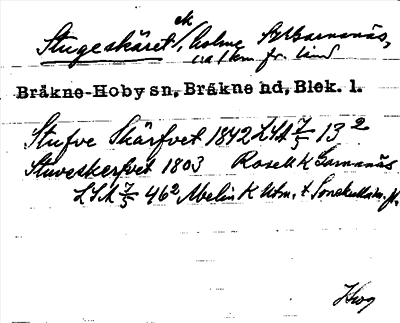 Stugeskäret ek/, holme S Garnanäs,
ca 1 km fr. land
Bräkne-Hoby sn, Bräkne hd, Blek. l.
Stufve Skärfvet 1842 LSA 7/5 13²
Stuveskerfvet 1803 Rosell K Garnanäs
LSA 7/5 46² Melin K Utm. t Sonekulla m. fl.